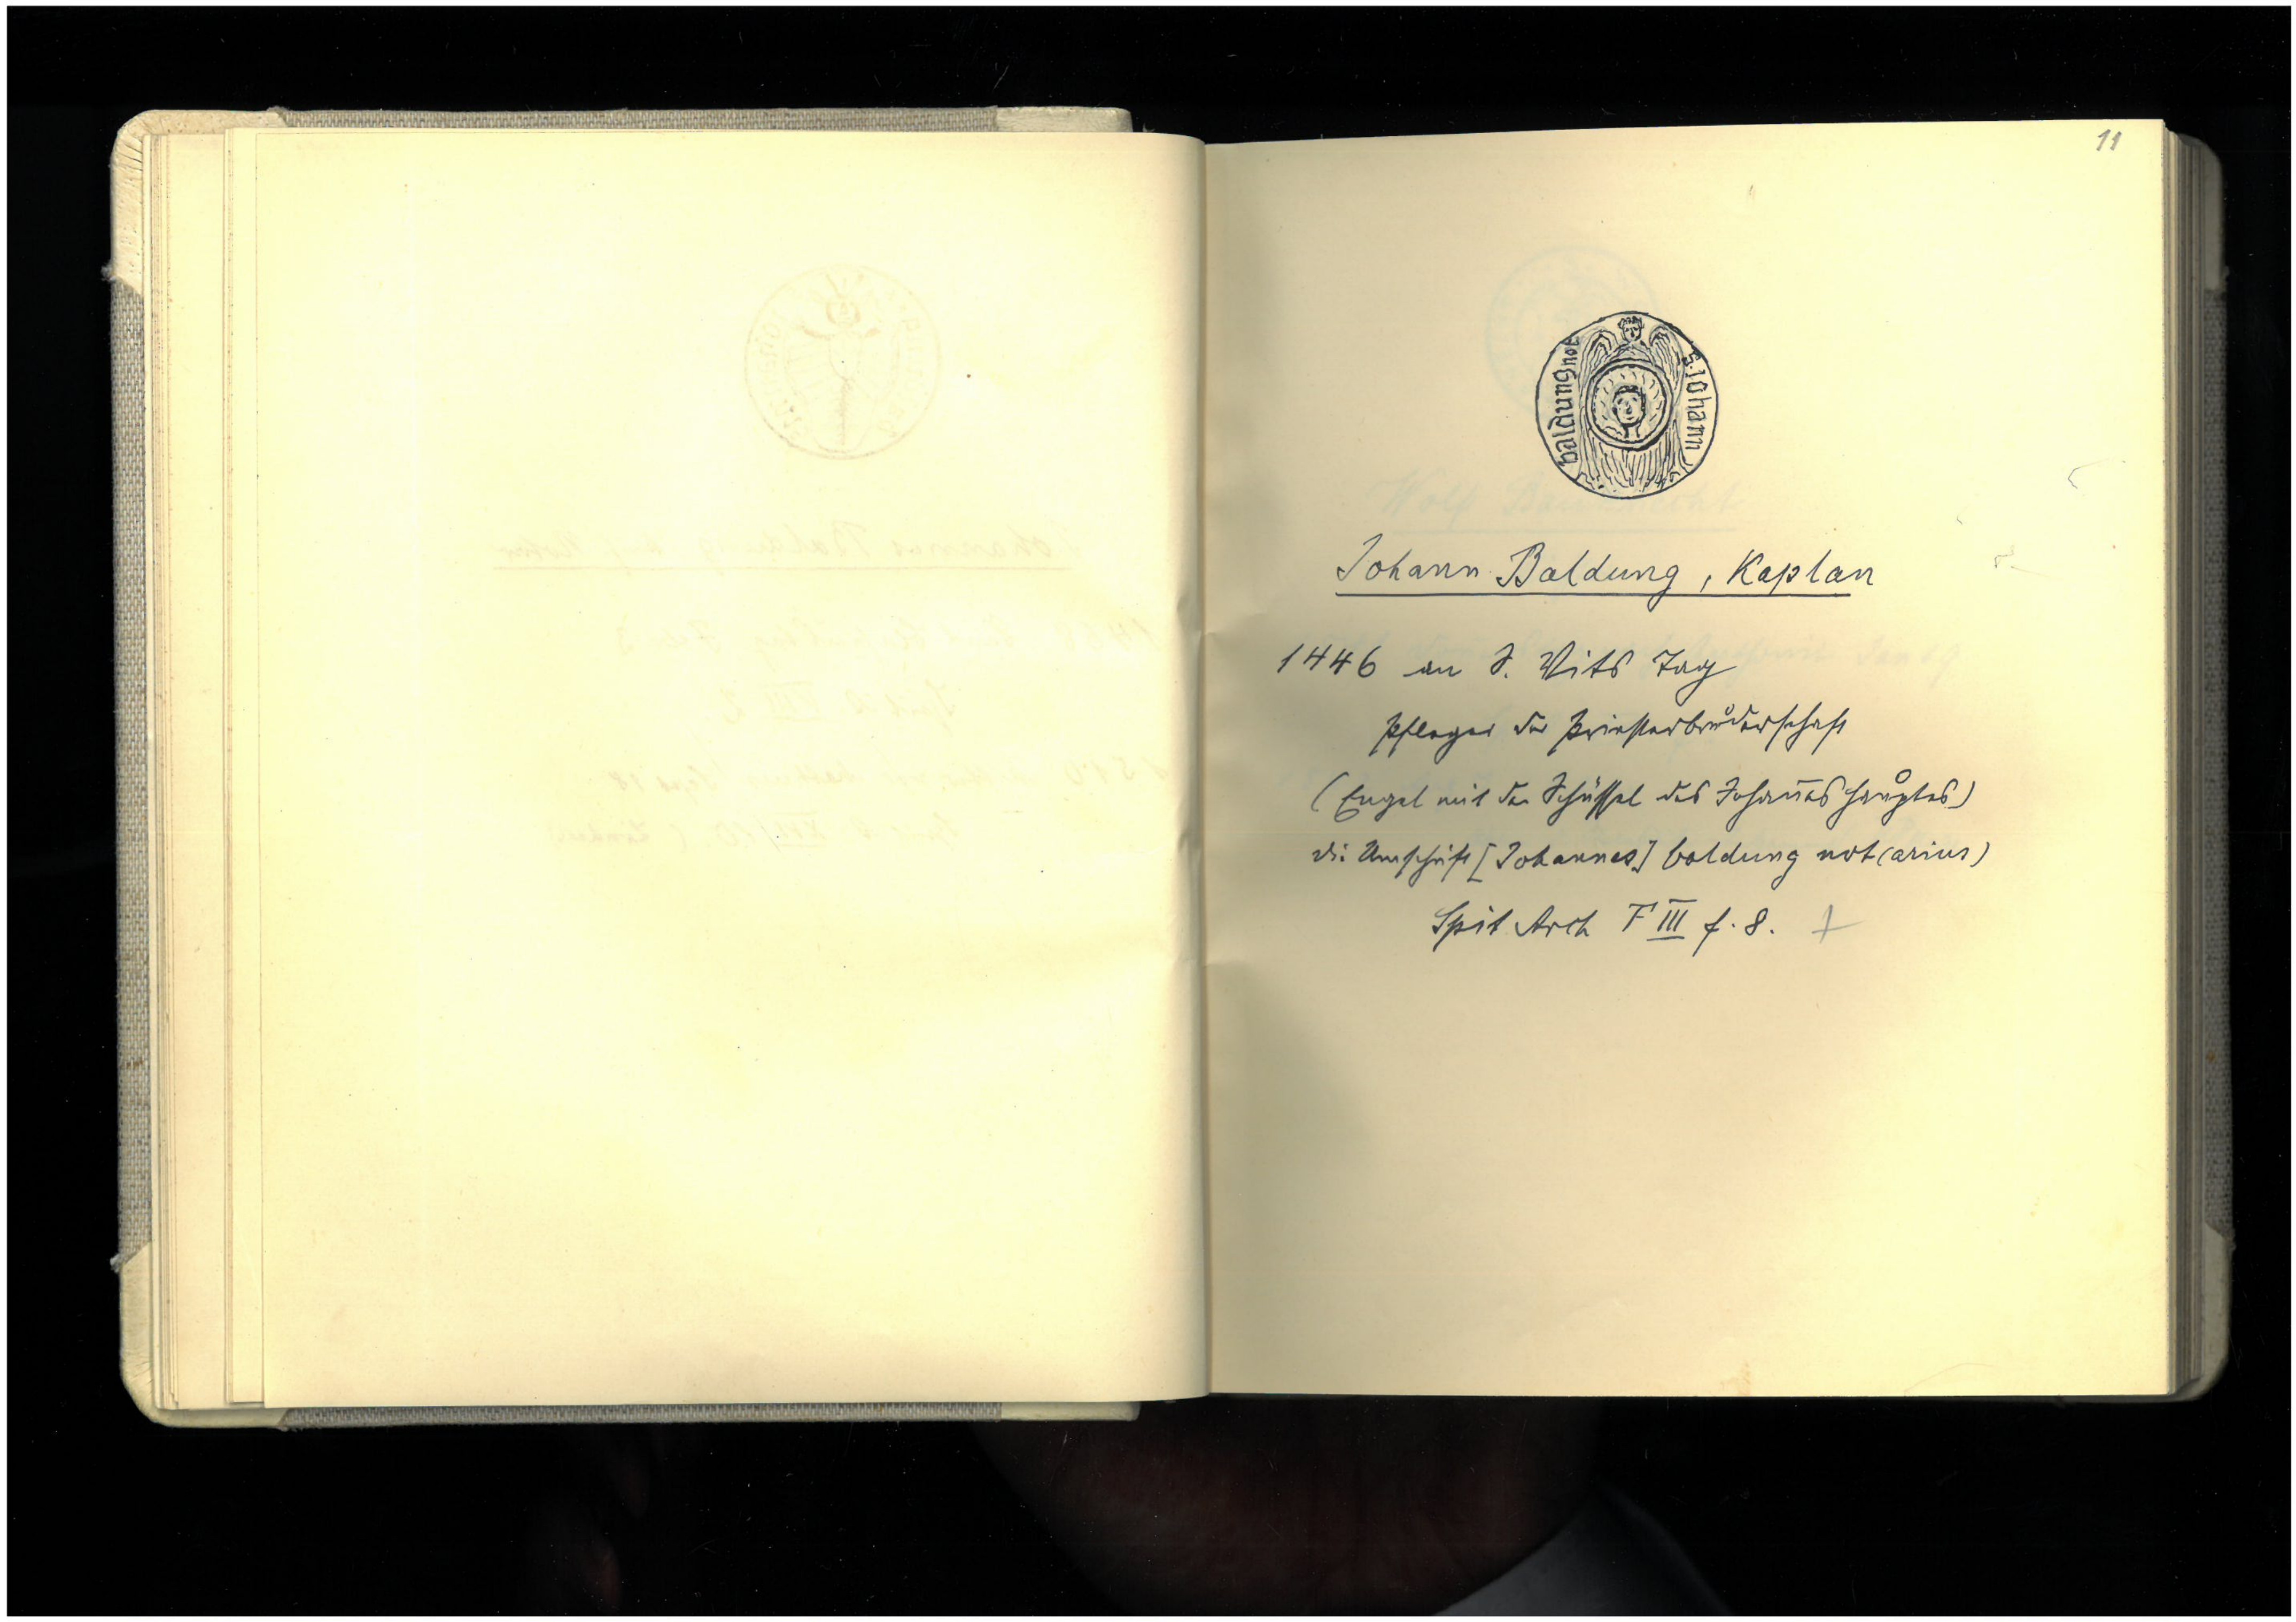 11
S. Johann
baldung not
Johann Baldung, Kaplan
1446 an S. Vits Tag
Pfleger der Priesterbrůderschaft
(Engel mit der Schüssel des Johañes haůptes)
die Umschrift [Johannes] baldung not(arius)
Spit Arch F III f. 8.